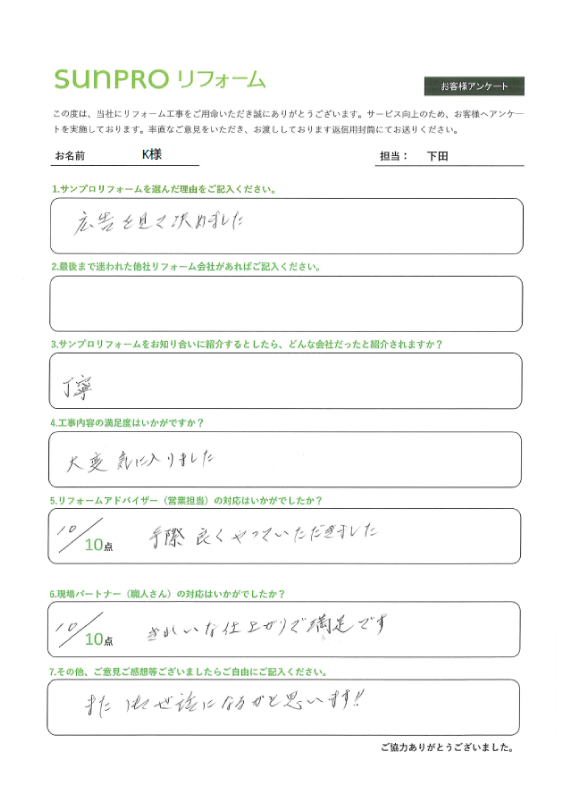 SUNPRO リフォーム
お客様アンケート
この度は、当社にリフォーム工事をご用命いただき誠にありがとうございます。サービス向上のため、お客様へアンケー
トを実施しております。率直なご意見をいただき、お渡ししております返信用封筒にてお送りください。
お名前 K様 担当： 下田
1.サンプロリフォームを選んだ理由をご記入ください。
広告を見て決めました
2.最後まで迷われた他社リフォーム会社があればご記入ください。
3.サンプロリフォームをお知り合いに紹介するとしたら、どんな会社だったと紹介されますか？
丁寧
4.工事内容の満足度はいかがですか？
大変気に入りました
5.リフォームアドバイザー（営業担当）の対応はいかがでしたか？
10/10点 手際良くやっていただきました
6.現場パートナー（職人さん）の対応はいかがでしたか？
10/10点 きれいな仕上がりで満足です
7.その他、ご意見ご感想等ございましたらご自由にご記入ください。
また お世話になるかと思います!!
ご協力ありがとうございました。